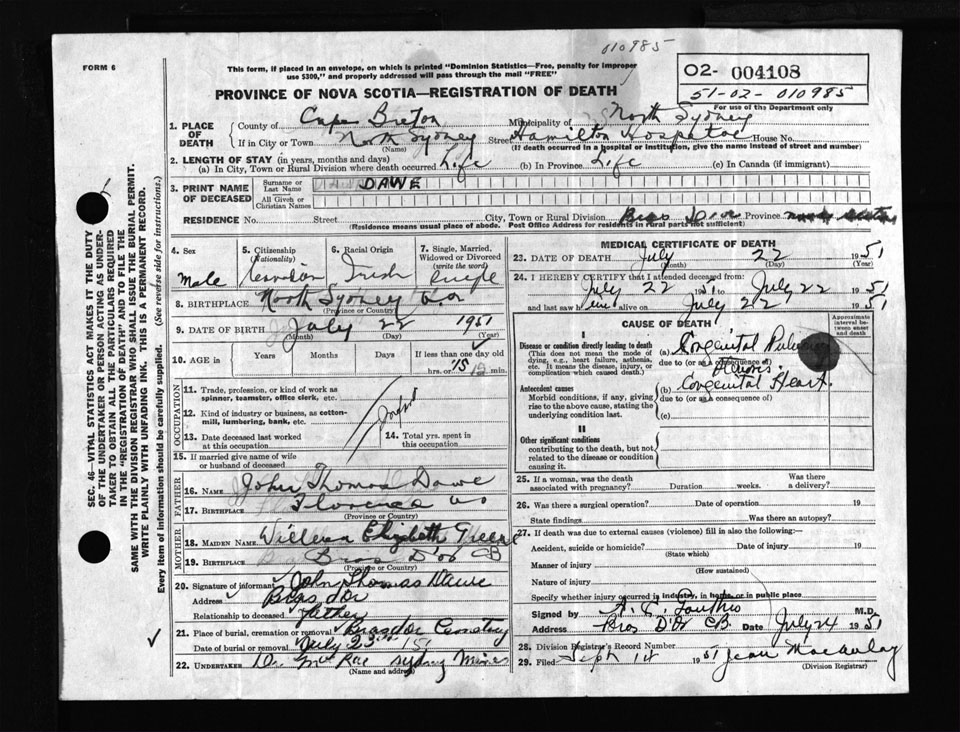 010985
FORM 6
This form, if placed in an envelope, on which is printed "Dominion Statistics—Free, penalty for improper
use $300," and properly addressed will pass through the mail "FREE"
O2- 004108
51-02-010985
For use of the Department only
PROVINCE OF NOVA SCOTIA—REGISTRATION OF DEATH
1. PLACE OF DEATH
County of Cape Breton Municipality of North Sydney
If in City or Town North Sydney Street Hamilton Hospital House No.
(Name) (If death occurred in a hospital or institution, give the name instead of street and number)
2. LENGTH OF STAY (in years, months and days)
(a) In City, Town or Rural Division where death occurred Life (b) In Province Life (c) In Canada (if immigrant)
3. PRINT NAME OF DECEASED
Surname or Last Name DAWE
All Given or Christian Names
RESIDENCE No. Street City, Town or Rural Division Bras D'or Province
(Residence means usual place of abode. Post Office Address for residents in rural parts not sufficient)
4. Sex Male
5. Citizenship (Nationality) Canadian
6. Racial Origin Irish
7. Single, Married, Widowed or Divorced (write the word) Single
8. BIRTHPLACE North Sydney
(Province or Country)
9. DATE OF BIRTH July 22 1951
(Month) (Day) (Year)
10. AGE in Years Months Days If less than one day old
hrs. or 15 min.
OCCUPATION
11. Trade, profession, or kind of work as spinner, teamster, office clerk, etc.
12. Kind of industry or business, as cotton-mill, lumbering, bank, etc.
Infant
13. Date deceased last worked at this occupation
14. Total yrs. spent in this occupation
15. If married give name of wife or husband of deceased
FATHER
16. NAME John Thomas Dawe
17. BIRTHPLACE Florence
(Province or Country)
MOTHER
18. MAIDEN NAME Elizabeth
19. BIRTHPLACE Bras D'or CB
(Province or Country)
20. Signature of informant John Thomas Dawe
Address Bras d'Or
Relationship to deceased Father
21. Place of burial, cremation or removal Bras d'or Cemetery
Date of burial or removal July 23 '51
22. UNDERTAKER D. McRae Sydney Mines
(Name and address)
MEDICAL CERTIFICATE OF DEATH
23. DATE OF DEATH July 22 1951
(Month) (Day) (Year)
24. I HEREBY CERTIFY that I attended deceased from:
July 22 1951 to July 22 1951
and last saw h alive on July 22 1951
CAUSE OF DEATH
Approximate interval between onset and death
I
Disease or condition directly leading to death
(This does not mean the mode of dying, e.g., heart failure, asthenia, etc. It means the disease, injury, or complication which caused death.)
(a) Congenital
due to (or as a consequence of)
Antecedent causes
Morbid conditions, if any, giving rise to the above cause, stating the underlying condition last.
(b) Congenital Heart.
due to (or as a consequence of)
(c)
II
Other significant conditions
contributing to the death, but not related to the disease or condition causing it.
25. If a woman, was the death associated with pregnancy? Duration weeks. Was there a delivery?
26. Was there a surgical operation? Date of operation 19
State findings Was there an autopsy?
27. If death was due to external causes (violence) fill in also the following:—
Accident, suicide or homicide? Date of injury 19
(State which)
Manner of injury
(How sustained)
Nature of injury
Specify whether injury occurred in industry, in home or in public place
Signed by M.D.
Address Bras D'Or CB. Date July 24 1951
28. Division Registrar's Record Number
29. Filed Sept 14 1951 Jean MacAulay
(Division Registrar)
SEC. 46—VITAL STATISTICS ACT MAKES IT THE DUTY
OF THE UNDERTAKER OR PERSON ACTING AS UNDER-
TAKER TO OBTAIN ALL THE PARTICULARS REQUIRED
IN THE "REGISTRATION OF DEATH" AND TO FILE THE
SAME WITH THE DIVISION REGISTRAR WHO SHALL ISSUE THE BURIAL PERMIT.
WRITE PLAINLY WITH UNFADING INK. THIS IS A PERMANENT RECORD.
Every item of information should be carefully supplied. (See reverse side for instructions.)